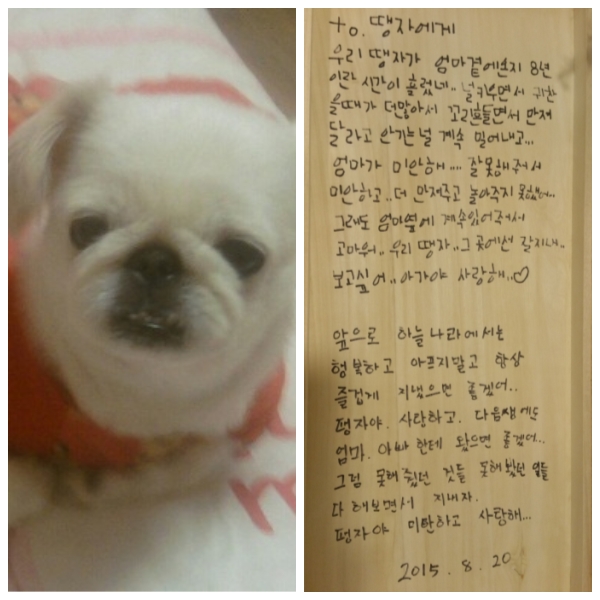 to. 땡자에게
우리 땡자가 엄마곁에온지 8년
이란 시간이 흘렀네.. 널키우면서 귀찮
을때가 더많아서 꼬리흔들면서 만져
달라고 안기는널 계속 밀어내고...
엄마가 미안해.... 잘못해줘서
미안하고.. 더 만져주고 놀아주지 못했어...
그래도 엄마옆에 계속있어줘서
고마워.. 우리 땡자.. 그곳에선 잘지내..
보고싶어.. 아가야 사랑해..♡
앞으로 하늘나라에서는
행복하고 아프지말고 항상
즐겁게 지냈으면 좋겠어..
땡자야. 사랑하고. 다음생에도
엄마. 아빠한테 왔으면 좋겠어...
그럼 못해줬던 것들 못해봤던 일들
다 해보면서 지내자.
땡자야 미안하고 사랑해...
2015. 8. 20